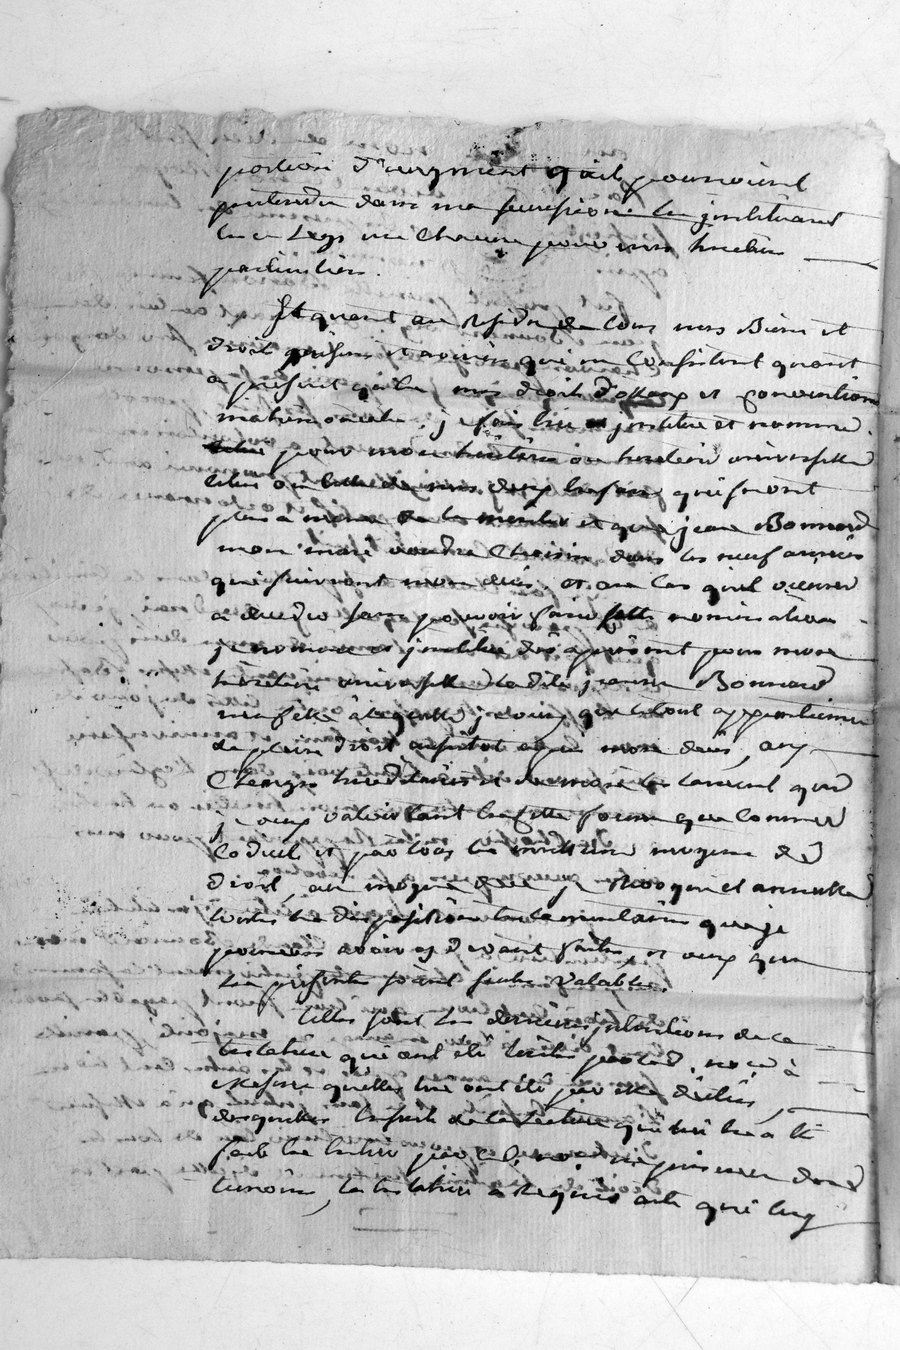 portion d'augment qu'ils pourroient
pretendre dans ma succession les instituant
en ce Legs un Chacun pour mes heritiers
particuliers.
Et quant au Residu de tous mes Biens et
droits presens et avenir qui ne Consistent quant
a present qu'en mes droits d'osteaux et conventions
matrimoniales, je fais institue et nomme
pour mon heritier ou heritiere universelle
celui ou celle de mes deux Enfans qui seront
plus a meme et que jean Bonnard
mon mari voudra Choisir dans les neuf années
qui suivront mon deces, et au cas qu'il vienne
a deceder sans pouvoir faire cette nomination
je nomme et institue dés aprésent pour mon
heritiere universelle ladite jeanne Bonnard
ma fille à laquelle je veux que le tout appartienne
de plein droit aussitot apres mon deces, aux
Charges hereditaires et de mon testament que
je veux valoir tant en cette forme que comme
Codicile et par tous les meilleurs moyens de
droit, au moyen de ce je Revoque et annulle
toutes les dispositions testamentaires que je
pourrois avoir cy devant faites et veux que
La presente soit seule Valable.
Telles sont les dernieres intentions de la
testatrice qui ont été écrites par led. no.re à
mesure qu'elles lui ont été par elle dictées,
desquelles Ensuite de la Lecture qui lui en a été
faite en entier par led. no.re en presence desd.
temoins, la testatrice a Requis acte qui luy